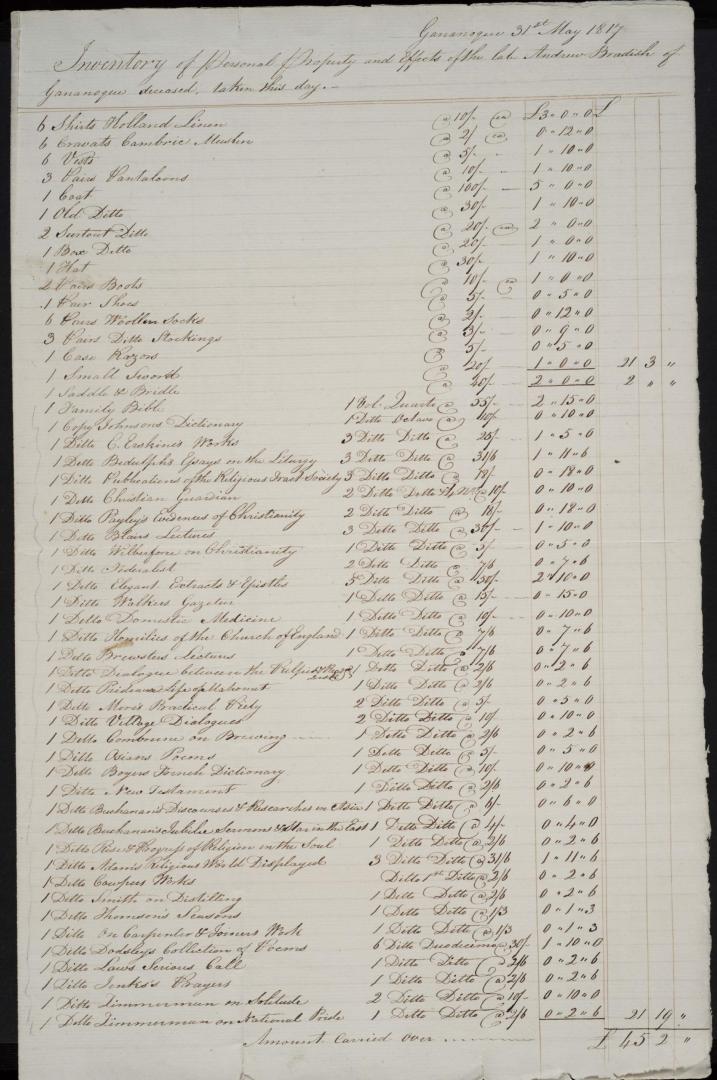 Gananoque 31st May 1817
Inventory of Personal Property and Effects of the late Andrew Bradish of
Gananoque deceased, taken this day.—
6 Shirts Holland Linen @ 10/- ea £3 " 0 " 0 £
6 Cravats Cambric Muslin @ 2/ ea 0 " 12 " 0
6 Vests @ 5/- 1 " 10 " 0
3 Pairs Pantaloons @ 10/- 1 " 10 " 0
1 Coat @ 100/- 5 " 0 " 0
1 Old Ditto @ 30/- 1 " 10 " 0
2 Surtout Ditto @ 20/- ea 2 " 0 " 0
1 Box Ditto @ 20/- 1 " 0 " 0
1 Hat @ 30/- 1 " 10 " 0
2 Pairs Boots @ 10/- ea 1 " 0 " 0
1 Pair Shoes @ 5/- 0 " 5 " 0
6 Pairs Woollen Socks @ 2/- 0 " 12 " 0
3 Pairs Ditto Stockings @ 3/- 0 " 9 " 0
1 Case Razors @ 5/- 0 " 5 " 0
1 Small Sword @ 20/- 1 " 0 " 0 21 3 "
1 Saddle & Bridle @ 40/- 2 " 0 " 0 2 " "
1 Family Bible 1 Vol. Quarto @ 55/- 2 " 15 " 0
1 Copy Johnsons Dictionary 1 Ditto Octavo @ 10/- 0 " 10 " 0
1 Ditto E. Erskine's Works 3 Ditto Ditto @ 25/- 1 " 5 " 0
1 Ditto Bidulph's Essays on the Liturgy 3 Ditto Ditto @ 31/6 1 " 11 " 6
1 Ditto Publications of the Religious Tract Society 3 Ditto Ditto @ 18/- 0 " 18 " 0
1 Ditto Christian Guardian 2 Ditto Ditto @ 10/- 0 " 10 " 0
1 Ditto Payley's Evidences of Christianity 2 Ditto Ditto @ 18/- 0 " 18 " 0
1 Ditto Blairs Lectures 3 Ditto Ditto @ 30/- 1 " 10 " 0
1 Ditto Wilberforce on Christianity 1 Ditto Ditto @ 5/- 0 " 5 " 0
1 Ditto Federalist 2 Ditto Ditto @ 7/6 0 " 7 " 6
1 Ditto Elegant Extracts & Epistles 5 Ditto Ditto @ 50/- 2 " 10 " 0
1 Ditto Walkers Gazeteer 1 Ditto Ditto @ 15/- 0 " 15 " 0
1 Ditto Domestic Medicine 1 Ditto Ditto @ 10/- 0 " 10 " 0
1 Ditto Homilies of the Church of England 1 Ditto Ditto @ 7/6 0 " 7 " 6
1 Ditto Brewsters Lectures 1 Ditto Ditto @ 7/6 0 " 7 " 6
1 Ditto Dialogue between the 1 Ditto Ditto @ 2/6 0 " 2 " 6
1 Ditto Prideaux Life of Mahomet 1 Ditto Ditto @ 2/6 0 " 2 " 6
1 Ditto More's Practical Piety 2 Ditto Ditto @ 5/- 0 " 5 " 0
1 Ditto Village Dialogues 2 Ditto Ditto @ 10/- 0 " 10 " 0
1 Ditto Combrune on Brewing 1 Ditto Ditto @ 2/6 0 " 2 " 6
1 Ditto Osians Poems 1 Ditto Ditto @ 5/- 0 " 5 " 0
1 Ditto Boyers French Dictionary 1 Ditto Ditto @ 10/- 0 " 10 " 0
1 Ditto New Testament 1 Ditto Ditto @ 2/6 0 " 2 " 6
1 Ditto Buchanan's Discourses & Researches in Asia 1 Ditto Ditto @ 6/- 0 " 6 " 0
1 Ditto Buchanan's Jubilee Sermons & Star in the East 1 Ditto Ditto @ 4/- 0 " 4 " 0
1 Ditto Rise & Progress of Religion in the Soul 1 Ditto Ditto @ 2/6 0 " 2 " 6
1 Ditto Adam's Religious World Displayed 3 Ditto Ditto @ 31/6 1 " 11 " 6
1 Ditto Cowpers Works Ditto 1st Ditto @ 2/6 0 " 2 " 6
1 Ditto Smith on Distilling 1 Ditto Ditto @ 2/6 0 " 2 " 6
1 Ditto Thomson's Seasons 1 Ditto Ditto @ 1/3 0 " 1 " 3
1 Ditto On Carpenter & Joiners Work 1 Ditto Ditto @ 1/3 0 " 1 " 3
1 Ditto Dodsley's Collection of Poems 6 Ditto Duodecimo @ 30/- 1 " 10 " 0
1 Ditto Law's Serious Call 1 Ditto Ditto @ 2/6 0 " 2 " 6
1 Ditto Jenks's Prayers 1 Ditto Ditto @ 2/6 0 " 2 " 6
1 Ditto Zimmerman on Solitude 2 Ditto Ditto @ 10/- 0 " 10 " 0
1 Ditto Zimmerman on National Pride 1 Ditto Ditto @ 2/6 0 " 2 " 6 21 19 "
Amount Carried Over £ 45 2 "